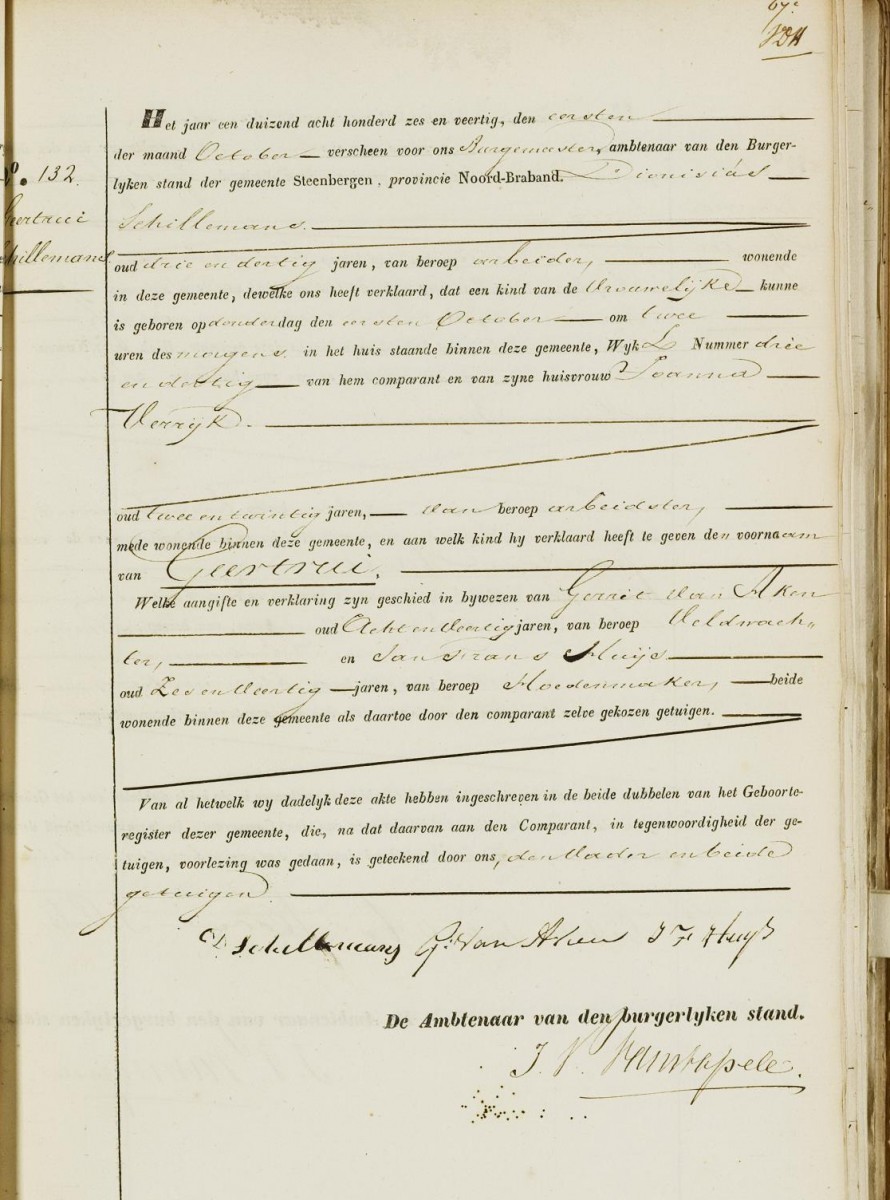 67e
124
Het jaar een duizend acht honderd zes en veertig, den eersten
der maand October verscheen voor ons Burgemeester, ambtenaar van den Burger-
No. 132.
lyken stand der gemeente Steenbergen, provincie Noord-Braband. Dionisius
Geertrui
Schillemans.
Schillemans
oud drie en dertig jaren, van beroep arbeider, wonende
in deze gemeente, dewelke ons heeft verklaard, dat een kind van de Vrouwelijke kunne
is geboren op donderdag den eersten October om twee
uren des morgens in het huis staande binnen deze gemeente, Wyk L Nummer drie
en dertig van hem comparant en van zyne huisvrouw Joanna
Verrijk.
oud twee en twintig jaren, van beroep arbeidster,
mede wonende binnen deze gemeente, en aan welk kind hy verklaard heeft te geven den voornaam
van Geertrui,
Welke aangifte en verklaring zyn geschied in bywezen van Gerrit van Aken
oud Acht en Veertig jaren, van beroep Veldwach„
ter, en Jan Frans Huijs
oud Zes en Veertig jaren, van beroep Hoedenmaker, beide
wonende binnen deze gemeente als daartoe door den comparant zelve gekozen getuigen.
Van al hetwelk wy dadelyk deze akte hebben ingeschreven in de beide dubbelen van het Geboorte-
register dezer gemeente, die, na dat daarvan aan den Comparant, in tegenwoordigheid der ge-
tuigen, voorlezing was gedaan, is geteekend door ons, den Vader en beide
getuigen.
D Schillemans G. Van Aken J F Huijs
De Ambtenaar van den burgerlyken stand.